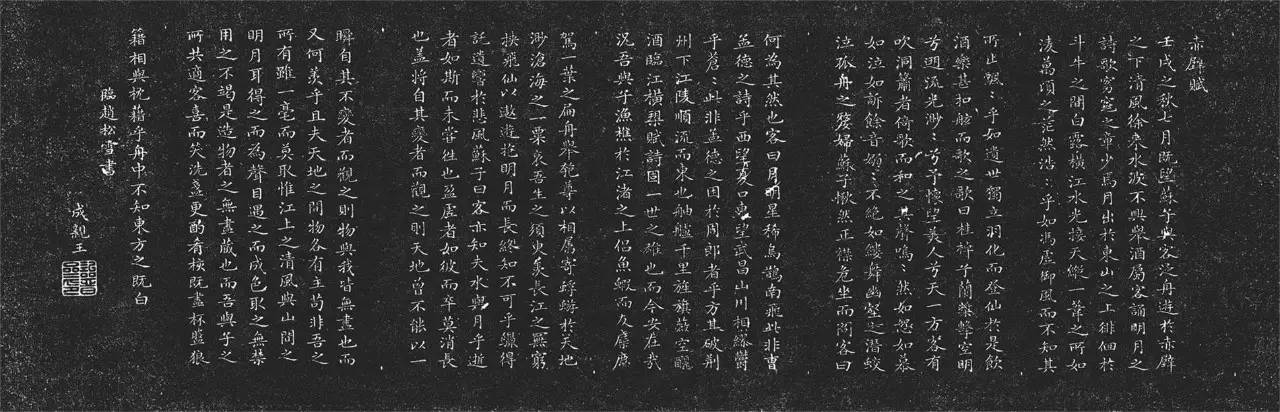 赤壁賦
壬戌之秋七月既望蘇子與客泛舟遊於赤壁
之下清風徐來水波不興舉酒屬客誦明月之
詩歌窈窕之章少焉月出於東山之上徘徊於
斗牛之間白露橫江水光接天縱一葦之所如
淩萬頃之茫然浩〻乎如馮虛御風而不知其
所止飄〻乎如遺世獨立羽化而登仙於是飲
酒樂甚扣舷而歌之歌曰桂棹兮蘭槳擊空明
兮遡流光渺〻兮予懷望美人兮天一方客有
吹洞簫者倚歌而和之其聲嗚〻然如怨如慕
如泣如訴餘音嫋〻不絕如縷舞幽壑之潛蛟
泣孤舟之嫠婦蘇子愀然正襟危坐而問客曰
何為其然也客曰月明星稀烏鵲南飛此非曹
孟德之詩乎西望夏口東望武昌山川相繆鬱
乎蒼〻此非孟德之困於周郎者乎方其破荊
州下江陵順流而東也舳艫千里旌旗蔽空釃
酒臨江橫槊賦詩固一世之雄也而今安在哉
況吾與子漁樵於江渚之上侶魚蝦而友麋鹿
駕一葉之扁舟舉匏尊以相屬寄蜉蝣於天地
渺滄海之一粟哀吾生之須臾羨長江之無窮
挾飛仙以遨遊抱明月而長終知不可乎驟得
託遺響於悲風蘇子曰客亦知夫水與月乎逝
者如斯而未嘗往也盈虛者如彼而卒莫消長
也蓋將自其變者而觀之則天地曾不能以一
瞬自其不變者而觀之則物與我皆無盡也而
又何羨乎且夫天地之間物各有主苟非吾之
所有雖一毫而莫取惟江上之清風與山間之
明月耳得之而為聲目遇之而成色取之無禁
用之不竭是造物者之無盡藏也而吾與子之
所共適客喜而笑洗盞更酌肴核既盡杯盤狼
籍相與枕藉乎舟中不知東方之既白
臨趙松雪書
成親王